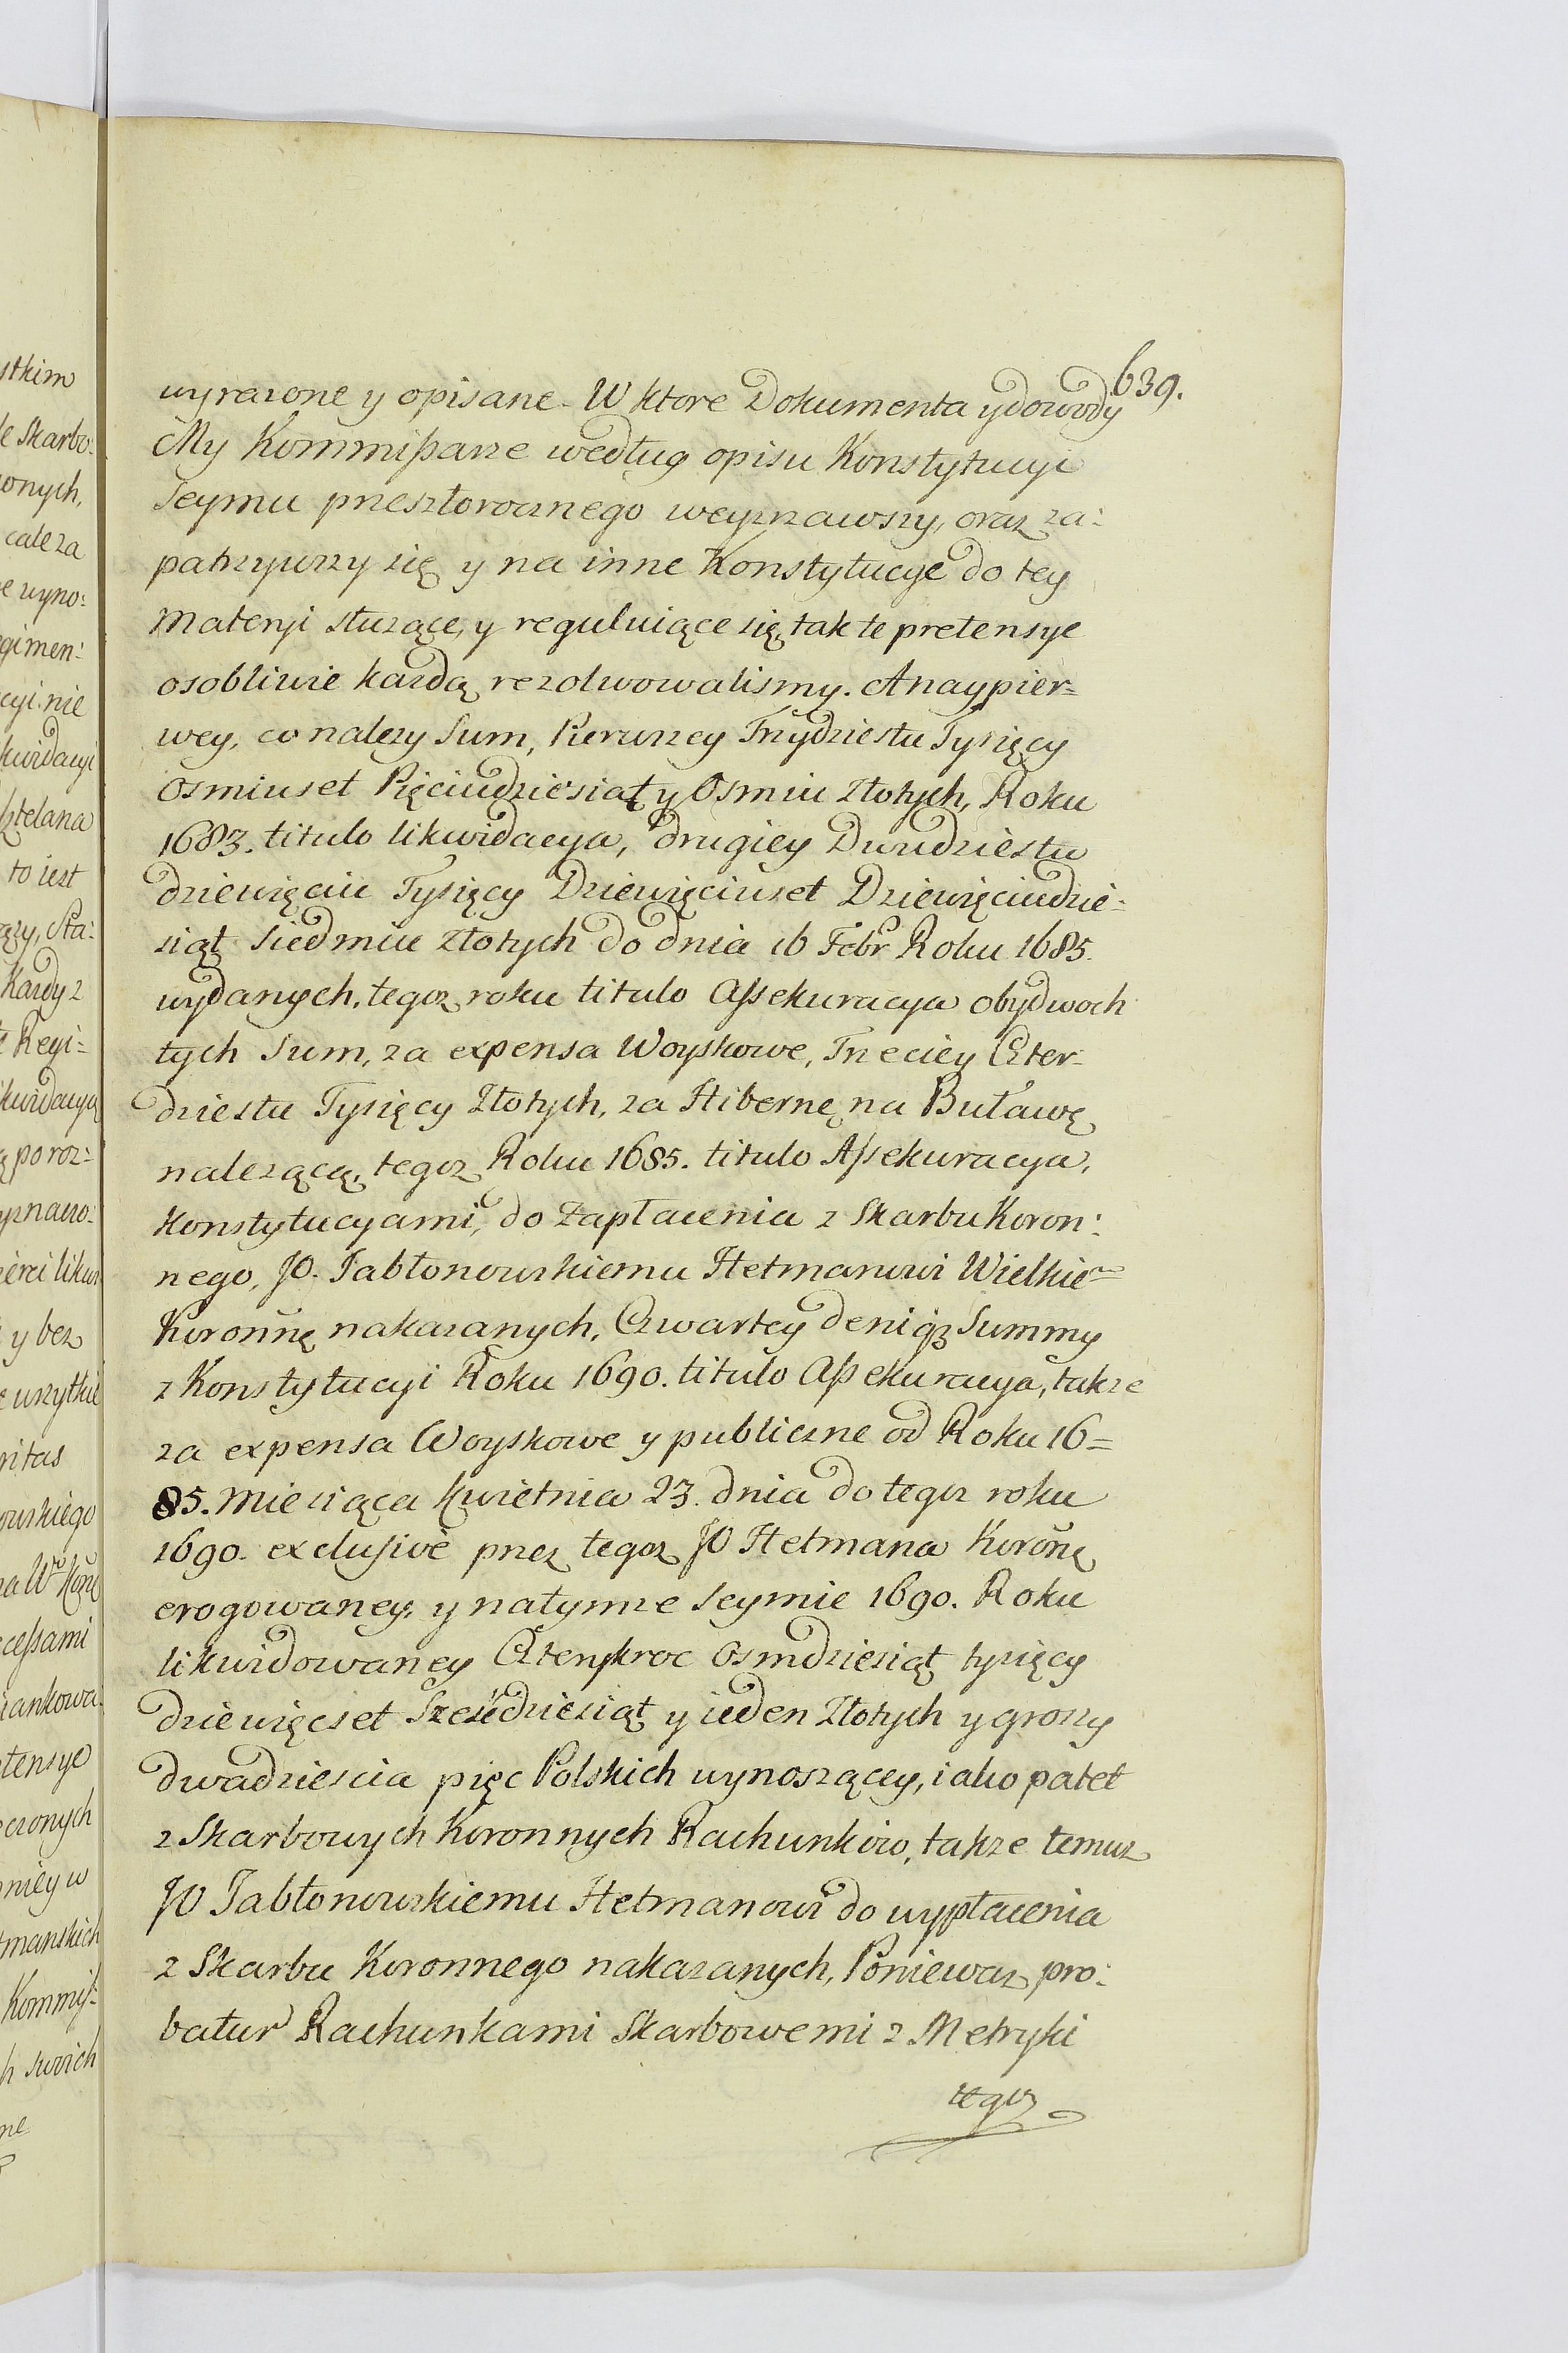 639.
wyrazone y opisane. W ktore Dokumenta y dowody
My Kommissarze według opisu Konstytucyi
Seymu przeszłorocznego weyzrzawszy, oraz za:
patrzywszy się y na inne Konstytucye do tey
materyi służące, y reguluiące się, tak te pretensye
osobliwie kazdą rezolwowalismy. A naypier=
wey, co nalezy Sum, Pierwszey Trzydziestu Tysięcy
Osmiuset Pięciudziesiąt y Osmiu Złotych, Roku
1683. titulo likwidacya, drugiey Dwudziestu
dziewięciu Tysięcy Dziewięciuset Dziewięciudzie:
siąt Siedmiu złotych do dnia 16 Febr Roku 1685.
wydanych, tegoz roku titulo Assekuracya obydwoch
tych Sum, za expensa Woyskowe, Trzeciey Czter=
dziestu Tysięcy Złotych, za Hibernę na Buławę
nalezącą, tegoz Roku 1685. titulo Assekuracya,
Konstytucyami, do Zapłacenia z Skarbu Koron:
nego, JO. Jabłonowskiemu Hetmanowi Wielkie=
Koronnę nakazanych, Czwartey deniqz Summy
z Konstytucyi Roku 1690. titulo Assekuracya, takze
za expensa Woyskowe y publiczne od Roku 16=
85. miesiąca kwietnia 23. dnia do tegoz roku
1690. exclusivè przez tegoz JO Hetmana Koronę
erogowaney, y natymze Seymie 1690. Roku
likwidowaney Czterykroc Osmdziesiąt tysięcy
dziewięcset Szescdziesiąt y ieden Złotych y groszy
dwadziescia pięc Polskich wynoszącey, iako patet
z Skarbowych Koronnych Rachunkow, takze temuz
JO Jabłonowskiemu Hetmanowi do wypłacenia
z Skarbu Koronnego nakazanych, Poniewaz pro:
batur Rachunkami Skarbowemi z Metryki
tegoz